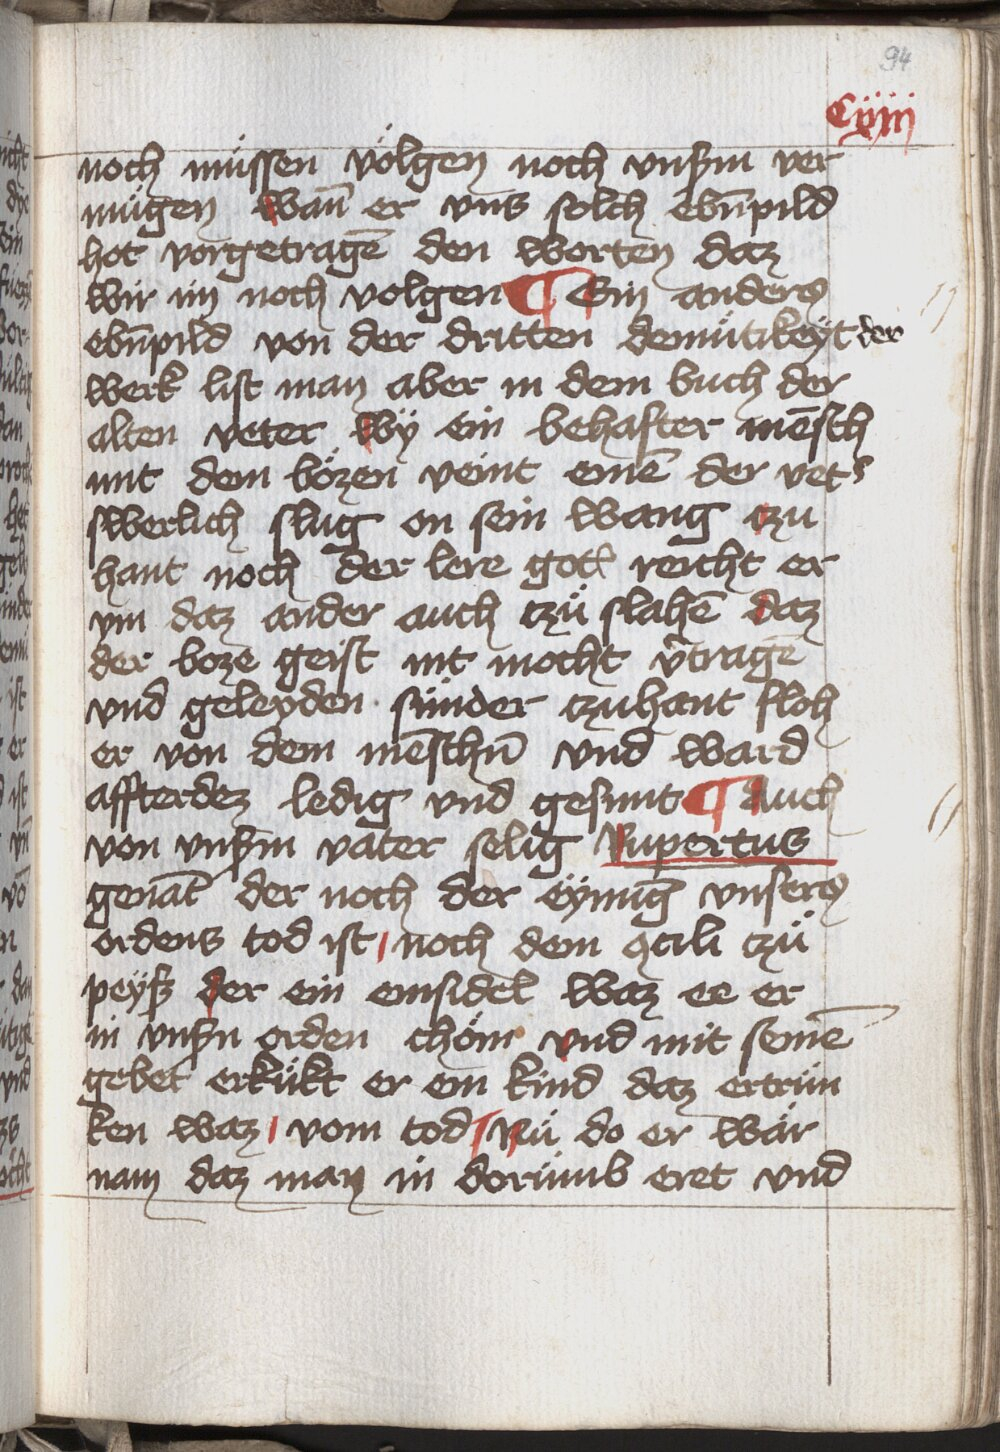 94
Cxiiij
noch müssen völgen noch vnßm ver
mügen wan̄ er vns solch ebn̄pild
hot vorgetragē den worten daz
wir im noch volgen ¶ Ein anders
ebn̄pild von der dritten demütikeyt der
werk list man aber in dem buch der
alten veter wÿ ein behafter mēsch
mit dem bözen veint einē der vet͛
swerlich slug on sein wang czu
hant noch der lere gotꝭ reicht er
ym daz ander auch czü slahē daz
der boze geist nit mocht v͛tragē
vnd geleyden · sünder czuhant floh
er von dem mēschn̄ vnd ward
affterdez ledig vnd gesunt ¶ Auch
von vnßm vater selig Rupertus
genāt der noch der eÿnūg vnsers
ordens tod ist noch dem ꝯcili czü
peÿß der ein einsidel waz ee er
in vnßn orden chöm vnd mit seinē
gebet erkükt er ein kind daz ertrün
ken waz vom tod Nü do er wär
nam daz man in dorümb eret vnd